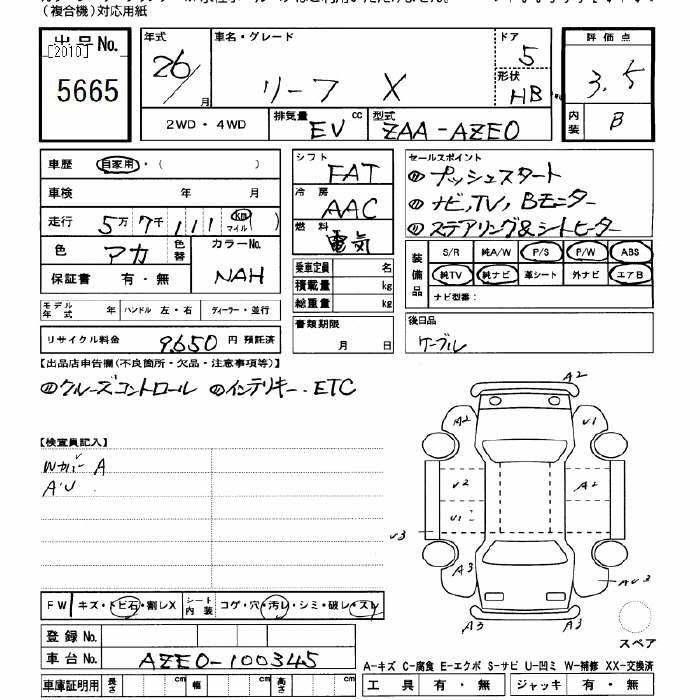 （複合機）対応用紙
出品No.
[2010]
5665
年式 26/ 月
車名・グレード リーフ X
ドア 5
形状 HB
評価点 3.5
内装 B
2WD・4WD
排気量 EV cc
型式 ZAA-AZE0
車歴 自家用・（ ）
車検 年 月
走行 5万 7千 111 km マイル
色 アカ 色替
カラーNo. NAH
保証書 有・無
モデル年式 年 ハンドル 左・右 ディーラー・並行
リサイクル料金 9,650 円 預託済
シフト FAT
冷房 AAC
燃料 電気
乗車定員 名
積載量 kg
総重量 kg
書類期限
月 日
セールスポイント
プッシュスタート
ナビ,TV,Bモニター
ステアリング&シートヒーター
装備品
S/R 純A/W P/S P/W ABS
純TV 純ナビ 革シート 外ナビ エアB
ナビ型番：
後日品
ケーブル
【出品店申告欄（不良箇所・欠品・注意事項等）】
クルーズコントロール インテリキー・ETC
【検査員記入】
Wカバー A
A・U
FW キズ・トビ石・割レX
シート内装 コゲ・穴・汚レ・シミ・破レ・スレ
登録No.
車台No. AZE0-100345
車庫証明用 長さ cm 幅 cm 高さ cm
A2
A2
U1
U2
A2
U1
U3
AU3
A3
A3
スペア
A-キズ C-腐食 E-エクボ S-サビ U-凹ミ W-補修 XX-交換済
工具 有・無 ジャッキ 有・無